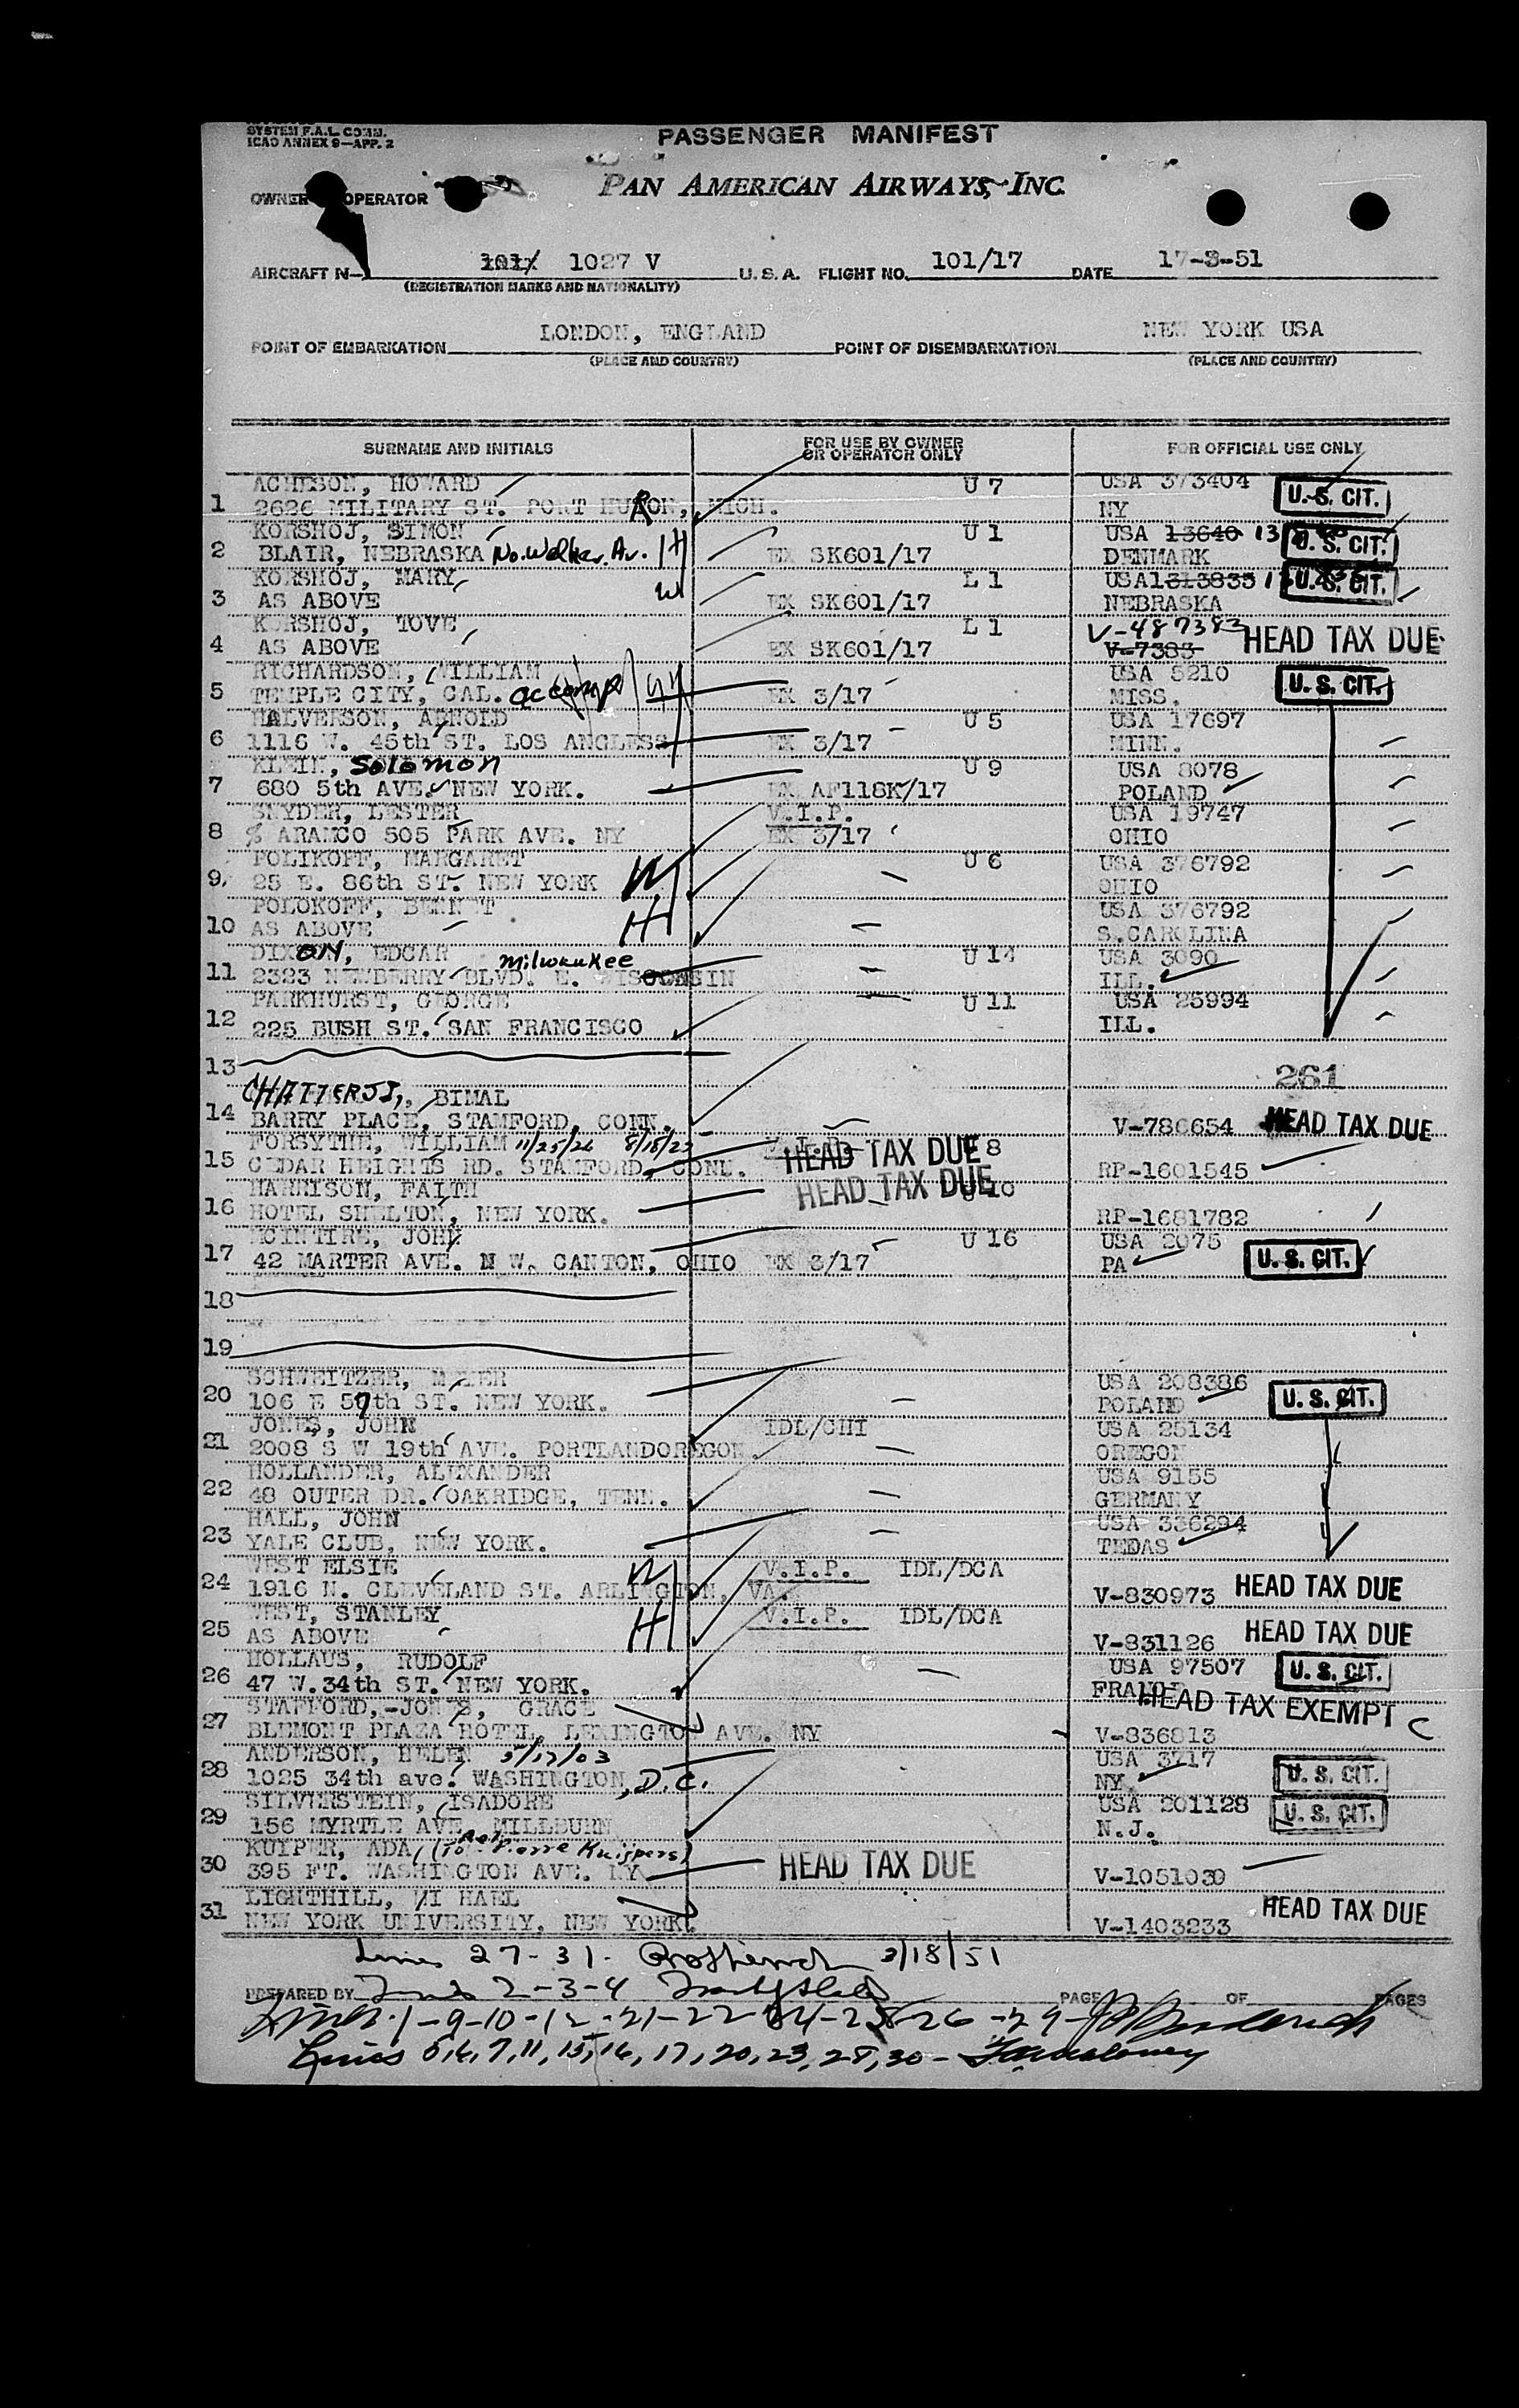 SYSTEM F.A.L. COMM.
ICAO ANNEX 9—APP. 2
PASSENGER MANIFEST
PAN AMERICAN AIRWAYS, INC.
OWNER OPERATOR
AIRCRAFT N— 1027 V U.S.A. FLIGHT NO. 101/17 DATE 17-3-51
(REGISTRATION MARKS AND NATIONALITY)
POINT OF EMBARKATION LONDON, ENGLAND POINT OF DISEMBARKATION NEW YORK USA
(PLACE AND COUNTRY) (PLACE AND COUNTRY)
SURNAME AND INITIALS FOR USE BY OWNER OR OPERATOR ONLY FOR OFFICIAL USE ONLY
ACHESON, HOWARD U 7 USA 373404 U.S. CIT.
1 2626 MILITARY ST. PORT HURON, MICH. NY
KORSHOJ, SIMON U 1 USA 13640 U.S. CIT.
2 BLAIR, NEBRASKA No. Walker Av. H EX SK601/17 DENMARK
KORSHOJ, MARY W L 1 USA1313835 U.S. CIT.
3 AS ABOVE EX SK601/17 NEBRASKA
KORSHOJ, TOVE L 1 V-487383 HEAD TAX DUE
4 AS ABOVE EX SK601/17 V-7383
RICHARDSON, WILLIAM USA 5210 U.S. CIT.
5 TEMPLE CITY, CAL. EX 3/17 MISS.
HALVERSON, ARNOLD U 5 USA 17697
6 1116 W. 45th ST. LOS ANGLESS EX 3/17 MINN.
KLEIN, Solomon U 9 USA 8078
7 680 5th AVE. NEW YORK. EX AF118K/17 POLAND
SNYDER, LESTER V.I.P. USA 19747
8 % ARAMCO 505 PARK AVE. NY EX 3/17 OHIO
POLIKOFF, MARGARET W U 6 USA 376792
9 25 E. 86th ST. NEW YORK OHIO
POLOKOFF, BENN T H USA 376792
10 AS ABOVE S.CAROLINA
DIXON, EDGAR Milwaukee U 14 USA 3090
11 2323 NEWBERRY BLVD. E. WISCONSIN ILL.
PARKHURST, GEORGE U 11 USA 25994
12 225 BUSH ST. SAN FRANCISCO ILL.
13 261
CHATTERJI, BIMAL
14 BARRY PLACE, STAMFORD, CONN. V-786654 HEAD TAX DUE
FORSYTHE, WILLIAM 11/25/26 8/18/23 HEAD TAX DUE 8
15 CEDAR HEIGHTS RD. STAMFORD, CONN. RP-1601545
HARRISON, FAITH HEAD TAX DUE 10
16 HOTEL SHELTON, NEW YORK. RP-1681782
MCINTIRE, JOHN U 16 USA 2075
17 42 MARTER AVE. N W. CANTON, OHIO EX 3/17 PA U.S. CIT.
18
19
SCHWEITZER, M ER USA 208386
20 106 E 57th ST. NEW YORK. POLAND U.S. CIT.
JONES, JOHN IDL/CHI USA 25134
21 2008 S W 19th AVE. PORTLANDOREGON. OREGON
HOLLANDER, ALEXANDER USA 9155
22 48 OUTER DR. OAKRIDGE, TENN. GERMANY
HALL, JOHN USA 336294
23 YALE CLUB, NEW YORK. TEDAS
WEST ELSIE W V.I.P. IDL/DCA
24 1916 N. CLEVELAND ST. ARLINGTON, VA. V-830973 HEAD TAX DUE
WEST, STANLEY H V.I.P. IDL/DCA
25 AS ABOVE V-831126 HEAD TAX DUE
HOLLAUS, RUDOLF USA 97507 U.S. CIT.
26 47 W.34th ST. NEW YORK. FRANCE
STAFFORD,-JONES, GRACE HEAD TAX EXEMPT C
27 BLEMONT PLAZA HOTEL, LEXINGTON AVE. NY V-836813
ANDERSON, HELEN 5/17/03 USA 3717
28 1025 34th ave. WASHINGTON, D.C. NY. U.S. CIT.
SILVERSTEIN, ISADORE USA 201128 U.S. CIT.
29 156 MYRTLE AVE. MILLBURN N.J.
KUIPER, ADA (To Pierre Kuijpers)
30 395 FT. WASHINGTON AVE. NY HEAD TAX DUE V-1051039
LIGHTHILL, MI HAEL HEAD TAX DUE
31 NEW YORK UNIVERSITY, NEW YORK. V-1403233
Lines 27-31- 3/18/51
PREPARED BY Lines 2-3-4 PAGE OF PAGES
Lines 1-9-10-12-21-22-24-25-26-29-
Lines 5,6,7,11,15,16,17,20,23,28,30-